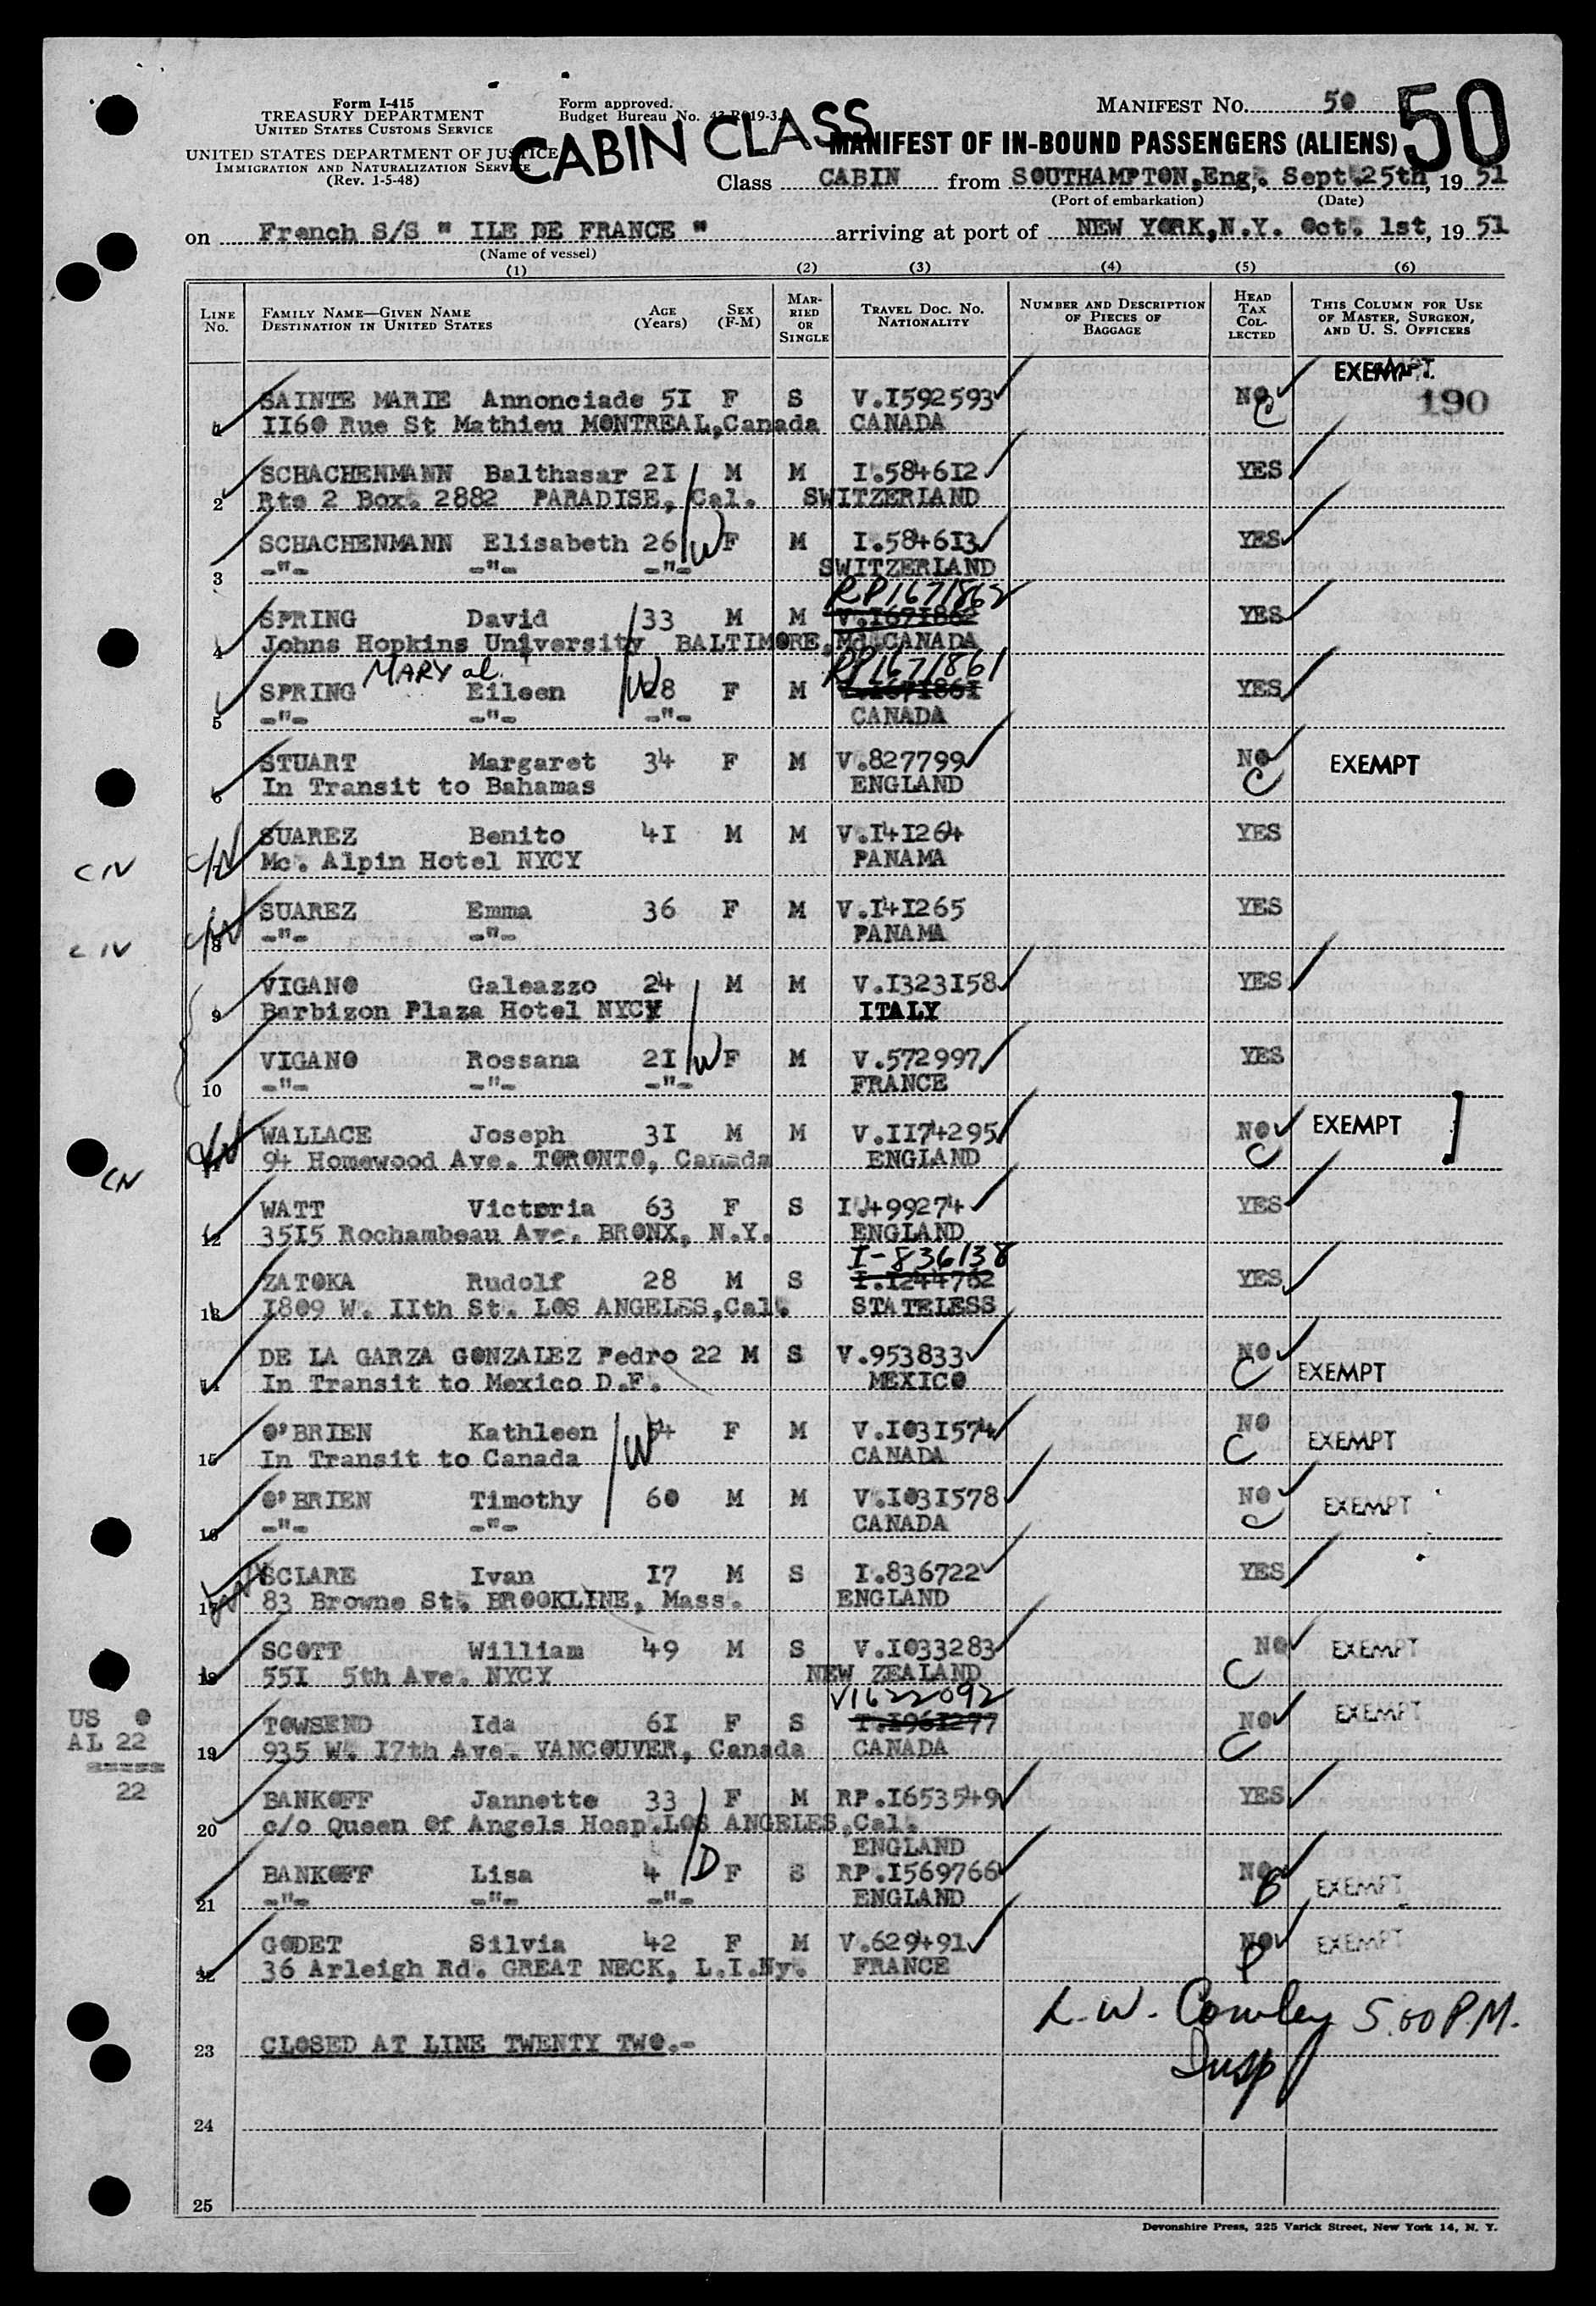 Form I-415
TREASURY DEPARTMENT
UNITED STATES CUSTOMS SERVICE
UNITED STATES DEPARTMENT OF JUSTICE
IMMIGRATION AND NATURALIZATION SERVICE
(Rev. 1-5-48)
Form approved.
Budget Bureau No. 43-R019-3.
CABIN CLASS
MANIFEST NO. 50
50
MANIFEST OF IN-BOUND PASSENGERS (ALIENS)
Class CABIN from SOUTHAMPTON,Eng. Sept.25th, 19 51
(Port of embarkation) (Date)
on French S/S " ILE DE FRANCE " arriving at port of NEW YORK,N.Y. Oct. 1st, 19 51
(Name of vessel)
(1) (2) (3) (4) (5) (6)
LINE NO. FAMILY NAME—GIVEN NAME DESTINATION IN UNITED STATES AGE (YEARS) SEX (F-M) MAR-RIED OR SINGLE TRAVEL DOC. NO. NATIONALITY NUMBER AND DESCRIPTION OF PIECES OF BAGGAGE HEAD TAX COL-LECTED THIS COLUMN FOR USE OF MASTER, SURGEON, AND U. S. OFFICERS
EXEMPT
SAINTE MARIE Annonciade 5I F S V.I592593 NO C 190
1 II60 Rue St Mathieu MONTREAL,Canada CANADA
SCHACHENMANN Balthasar 2I M M I.5846I2 YES
2 Rte 2 Box. 2882 PARADISE, Cal. SWITZERLAND
SCHACHENMANN Elisabeth 26 W F M I.5846I3 YES
3 -"- -"- -"- SWITZERLAND
RP1671862
SPRING David 33 M M V.I67I862 YES
4 Johns Hopkins University BALTIMORE,Md. CANADA
MARY al. RP1671861
SPRING Eileen W 28 F M V.I67I86I YES
5 -"- -"- -"- CANADA
STUART Margaret 34 F M V.827799 NO C EXEMPT
6 In Transit to Bahamas ENGLAND
SUAREZ Benito 4I M M V.I4I264 YES
CN C/N 7 Mc. Alpin Hotel NYCY PANAMA
SUAREZ Emma 36 F M V.I4I265 YES
CN C/N 8 -"- -"- PANAMA
VIGANO Galeazzo 24 M M V.I323I58 YES
9 Barbizon Plaza Hotel NYCY ITALY
VIGANO Rossana 2I W F M V.572997 YES
10 -"- -"- -"- FRANCE
WALLACE Joseph 3I M M V.II74295 NO C EXEMPT
CN C/N 94 Homewood Ave. TORONTO, Canada ENGLAND
WATT Victoria 63 F S I.499274 YES
12 35I5 Rochambeau Ave. BRONX, N.Y. ENGLAND
I-836138
ZATOKA Rudolf 28 M S I.I244762 YES
13 I809 W. IIth St. LOS ANGELES,Cal. STATELESS
DE LA GARZA GONZALEZ Pedro 22 M S V.953833 NO C EXEMPT
14 In Transit to Mexico D.F. MEXICO
O'BRIEN Kathleen W 54 F M V.I03I574 NO C EXEMPT
15 In Transit to Canada CANADA
O'BRIEN Timothy 60 M M V.I03I578 NO C EXEMPT
16 -"- -"- CANADA
SCLARE Ivan I7 M S I.836722 YES
17 83 Browne St. BROOKLINE, Mass. ENGLAND
SCOTT William 49 M S V.I033283 NO C EXEMPT
18 55I 5th Ave. NYCY NEW ZEALAND
V1622092
US 0 TOWSEND Ida 6I F S T.I96I277 NO C EXEMPT
AL 22 19 935 W. I7th Ave. VANCOUVER, Canada CANADA
=====
22
BANKOFF Jannette 33 F M RP.I653549 YES
20 c/o Queen Of Angels Hosp.LOS ANGELES,Cal.
ENGLAND
BANKOFF Lisa 4 D F S RP.I569766 NO B EXEMPT
21 -"- -"- -"- ENGLAND
GODET Silvia 42 F M V.629491 NO P EXEMPT
22 36 Arleigh Rd. GREAT NECK, L.I.Ny. FRANCE
L.W. Cowley 5.00 P.M.
Insp
23 CLOSED AT LINE TWENTY TWO.-
24
25
Devonshire Press, 225 Varick Street, New York 14, N. Y.